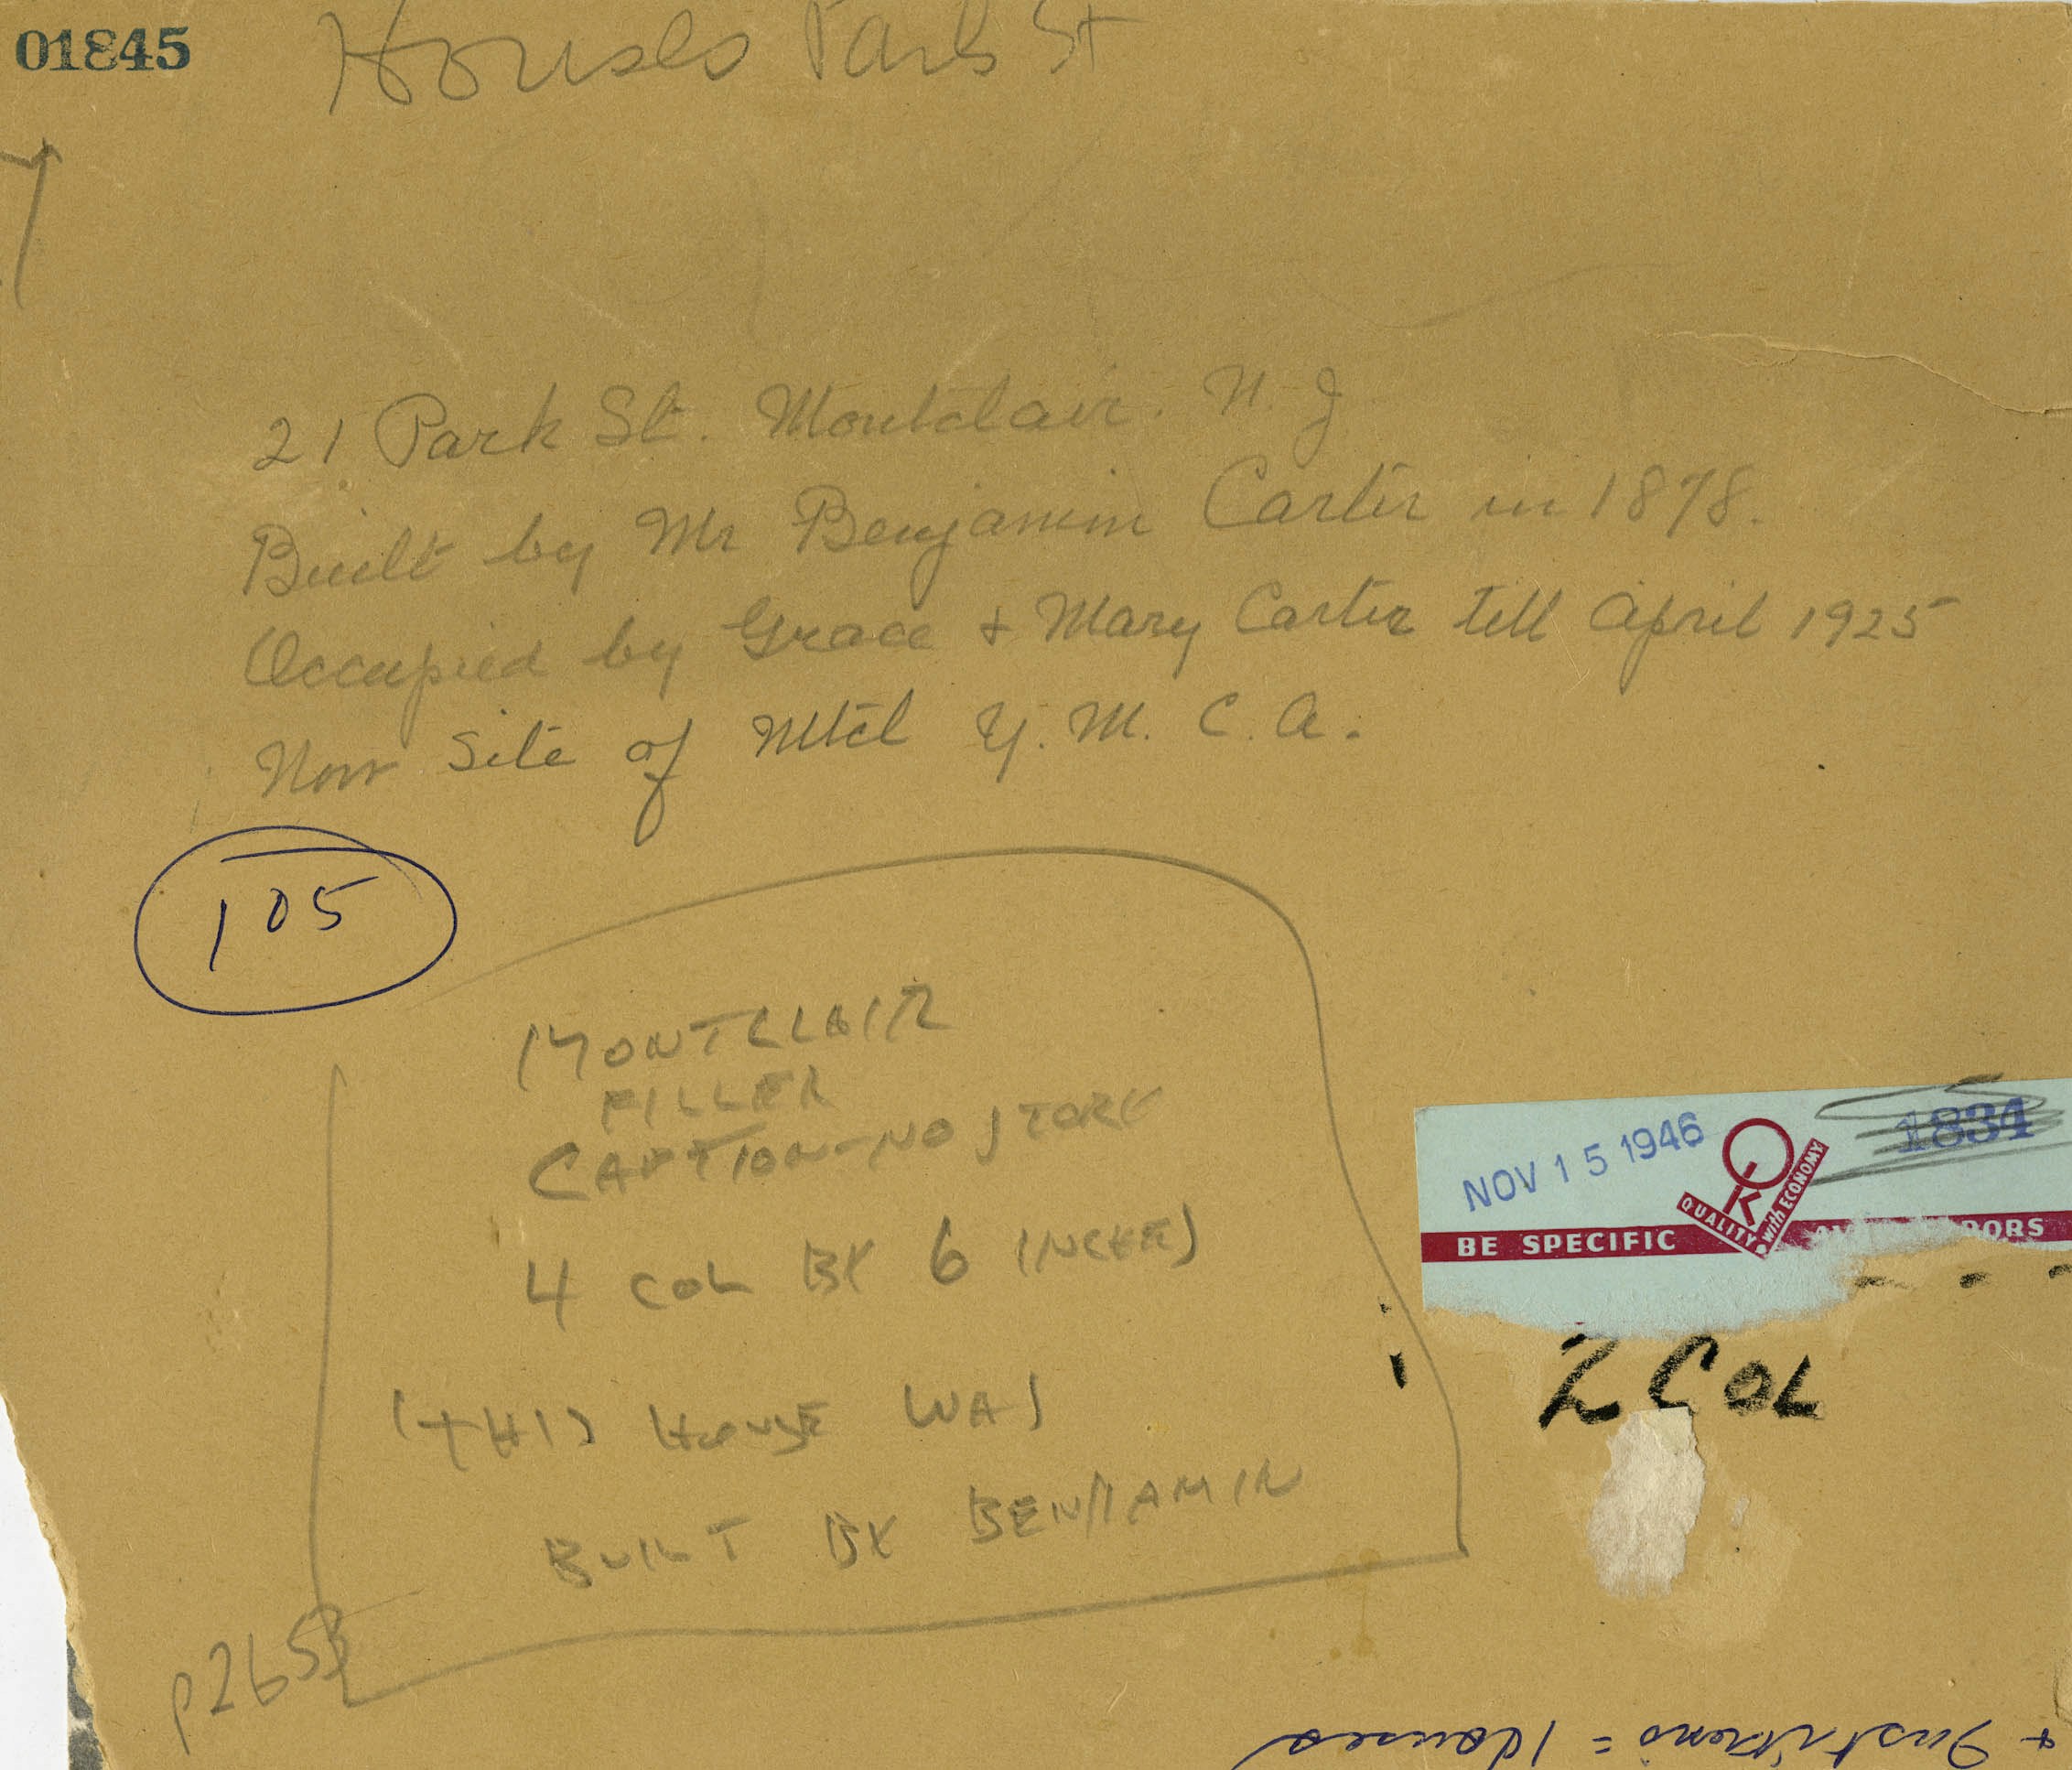 01845
Houses Park St
21 Park St. Montclair. N. J
Built by Mr Benjamin Carter in 1878.
Occupied by Grace + Mary Carter till April 1925
Now Site of Mtcl Y. M. C. A.
105
MONTCLAIR
FILLER
CAPTION - NO STORY
4 COL BY 6 INCHES
(THIS HOUSE WAS
BUILT BY BENJAMIN
NOV 15 1946
1834
OK
QUALITY with ECONOMY
BE SPECIFIC
2 COL
p2653
+ Institutions = Houses